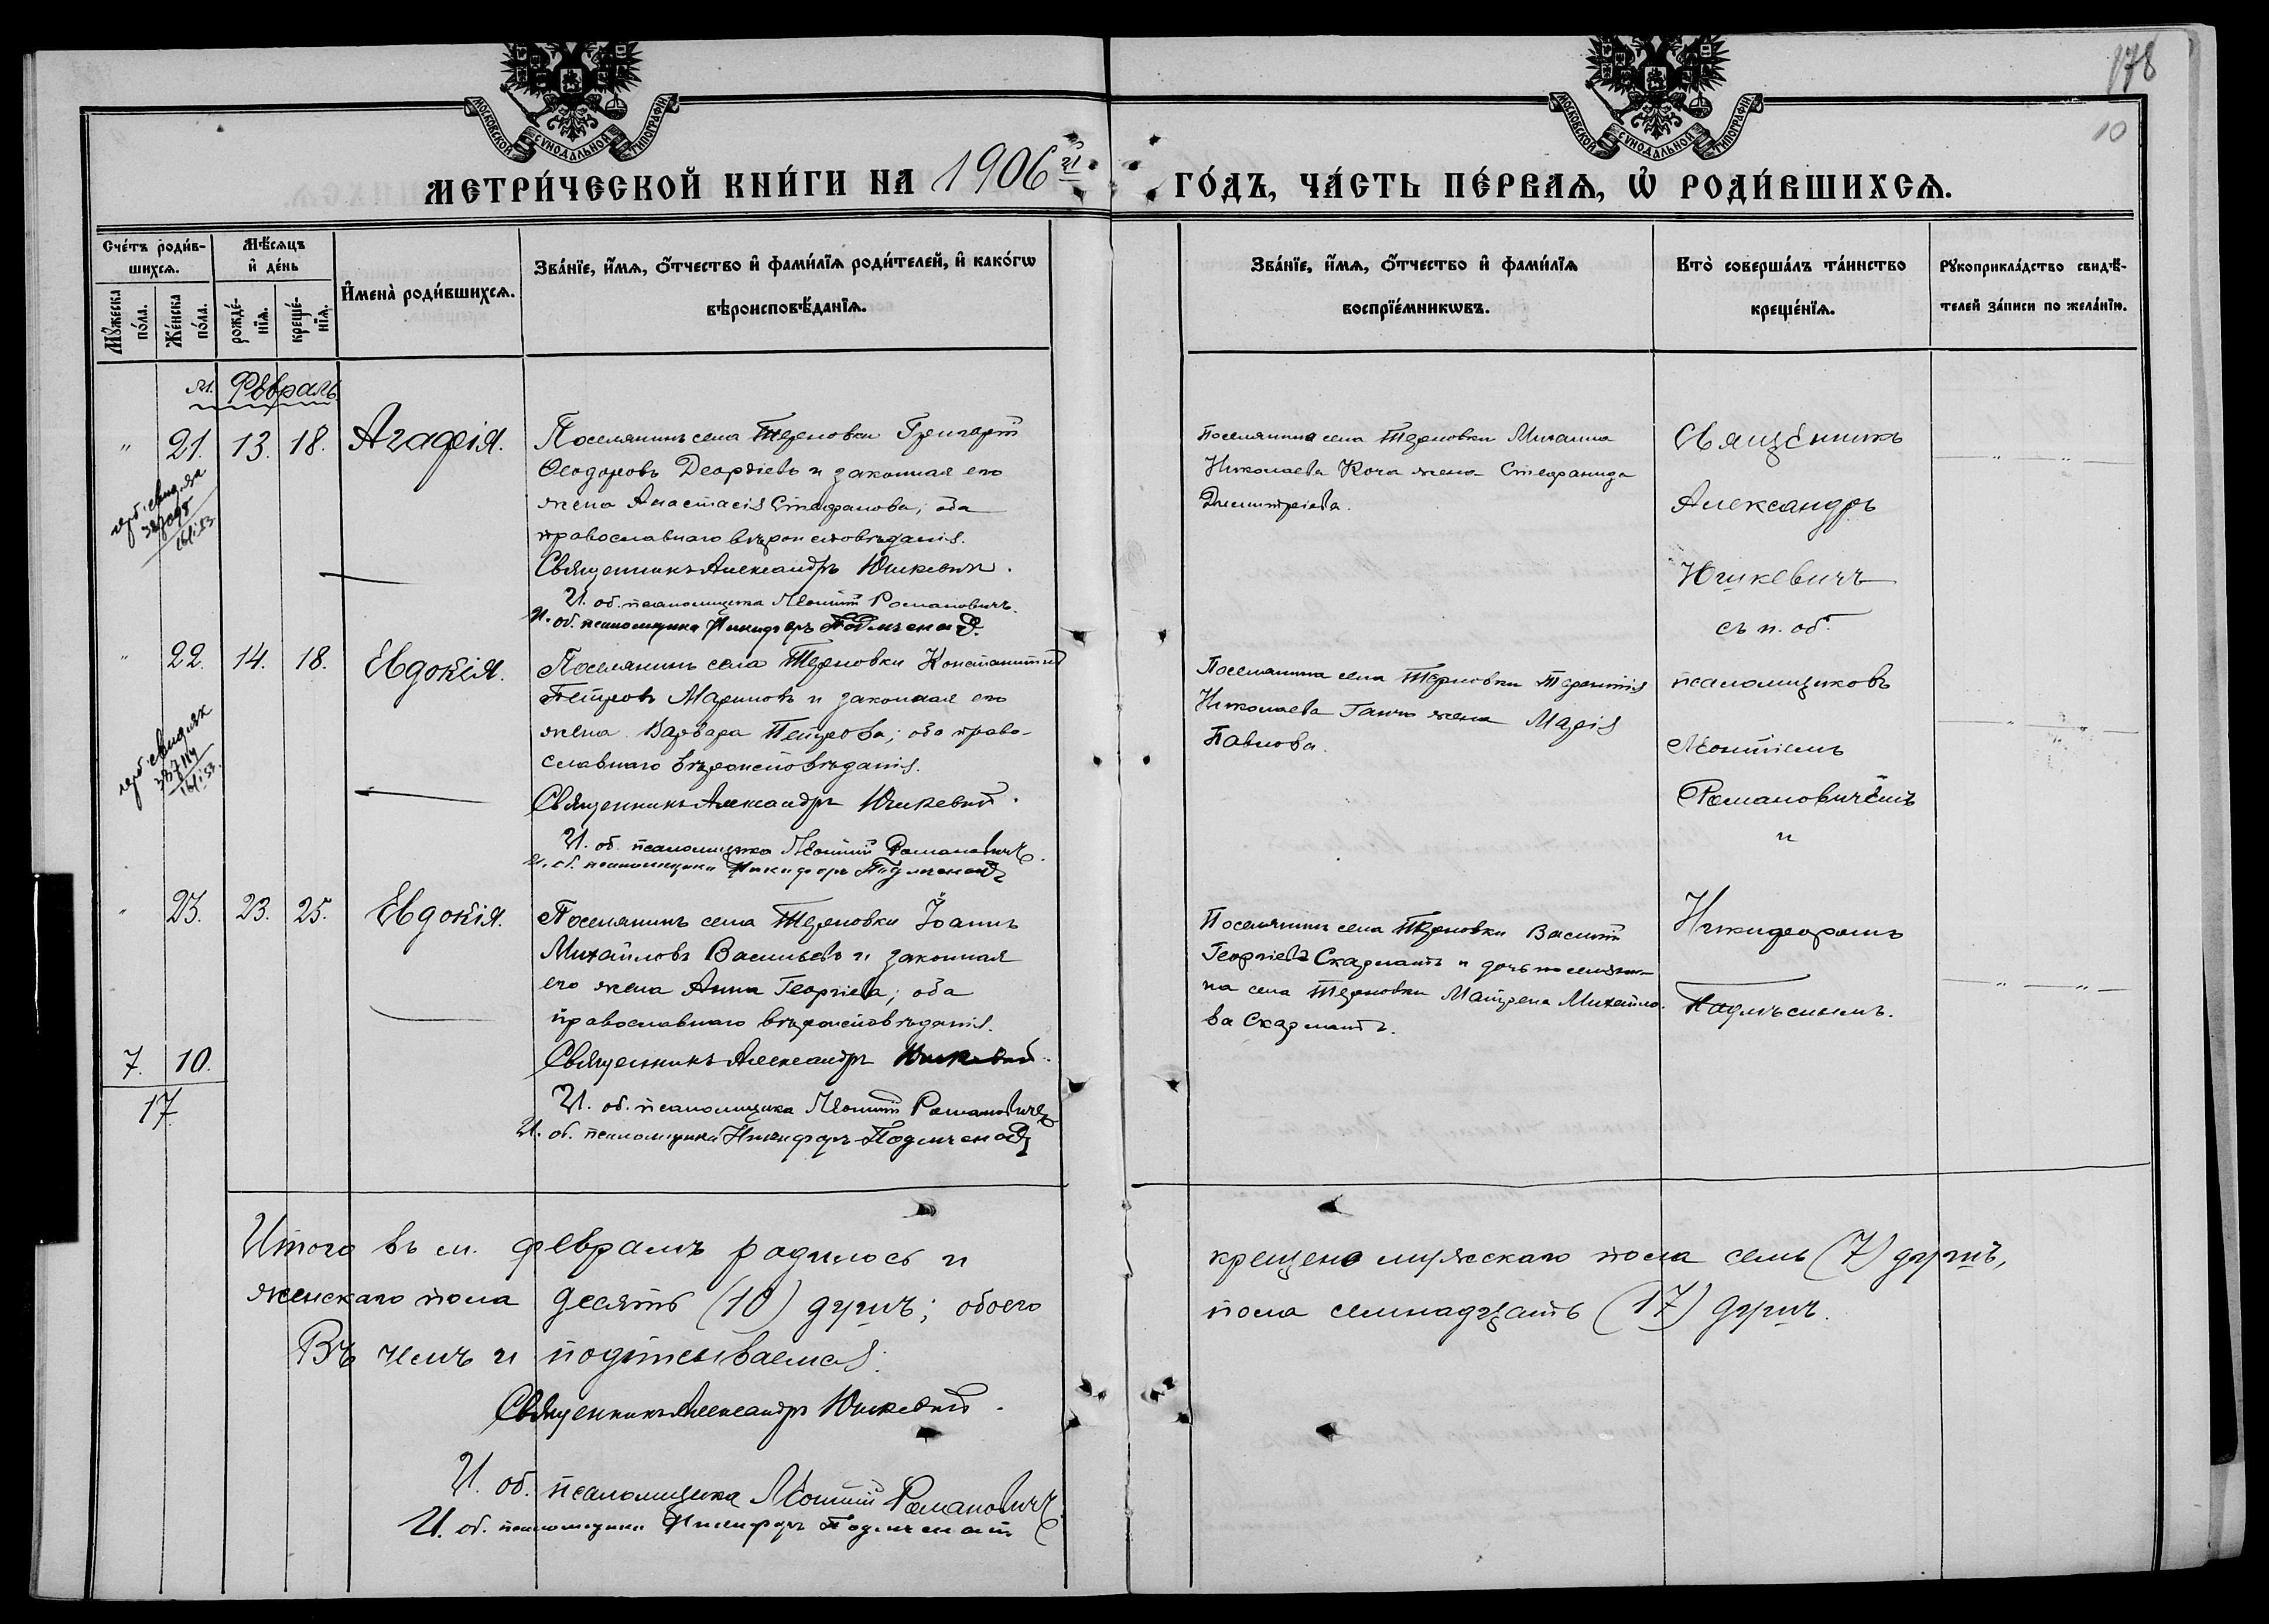 178
10
МОСКОВСКОЙ СУНОДАЛЬНОЙ ТИПОГРАФІИ
МОСКОВСКОЙ СУНОДАЛЬНОЙ ТИПОГРАФІИ
МЕТРИ́ЧЕСКОЙ КНИ́ГИ НА 1906 й
ГО́ДЪ, ЧА́СТЬ ПЕ́РВАѦ, Ѡ҆ РОДИ́ВШИХСѦ.
Сче́тъ роди́в-
шихсѧ.
Мѣ́сѧцъ
и҆ де́нь
И҆мена̀ роди́вшихсѧ.
Зва́нїе, и҆́мѧ, ѻ҆́тчество и҆ фами́лїѧ роди́телей, и҆ како́гѡ
вѣроисповѣ́данїѧ.
Мꙋ́жеска по́ла.
Же́нска по́ла.
рожде́-
нїѧ.
креще́-
нїѧ.
Зва́нїе, и҆́мѧ, ѻ҆́тчество и҆ фами́лїѧ
воспрїе́мникѡвъ.
Кто̀ соверша́лъ та́инство
креще́нїѧ.
Рꙋкоприкла́дство свидѣ́-
телей за́писи по жела́нїю.
м. Февраль
" 21. 13. 18. Агафія.
Поселянинъ села Терновки Григорій
Ѳеодоровъ Георгіевъ и законная его
жена Анастасія Стефанова; оба
православнаго вѣроисповѣданія.
Священникъ Александръ Юшкевичъ.
И. об. псаломщика Леонтій Романовичъ.
И. об. псаломщика Никифоръ
387098
Поселянина села Терновки Михаила
Николаева Коча жена Стефанида
Димитріева.
Священникъ
Александръ
Юшкевичъ
съ и. об.
" 22. 14. 18. Евдокія.
Поселянинъ села Терновки Константинъ
Петровъ Мариновъ и законная его
жена Варвара Петрова; оба право-
славнаго вѣроисповѣданія.
Священникъ Александръ Юшкевичъ.
И. об. псаломщика Леонтій Романовичъ.
И. об. псаломщика Никифоръ
Поселянина села Терновки Терентія
Николаева Ганчо жена Марія
Павлова.
псаломщиковъ
Леонтіемъ
Романовичемъ
и
" 23. 23. 25. Евдокія.
Поселянинъ села Терновки Іоаннъ
Михайловъ Васильевъ и законная
его жена Анна Георгіева; оба
православнаго вѣроисповѣданія.
Священникъ Александръ Юшкевичъ.
И. об. псаломщика Леонтій Романовичъ
И. об. псаломщика Никифоръ
Поселянинъ села Терновки Василій
Георгіевъ Скарлатъ и дочь поселяни-
на села Терновки Матрена Михайло-
ва Скарлатъ.
Никифоромъ
7. 10.
17.
Итого въ м. февралѣ родилось и
крещено мужскаго пола семь (7) душъ,
женскаго пола десять (10) душъ; обоего
пола семнадцать (17) душъ.
Въ чемъ и подписываемся:
Священникъ Александръ Юшкевичъ.
И. об. псаломщика Леонтій Романовичъ.
И. об. псаломщика Никифоръ